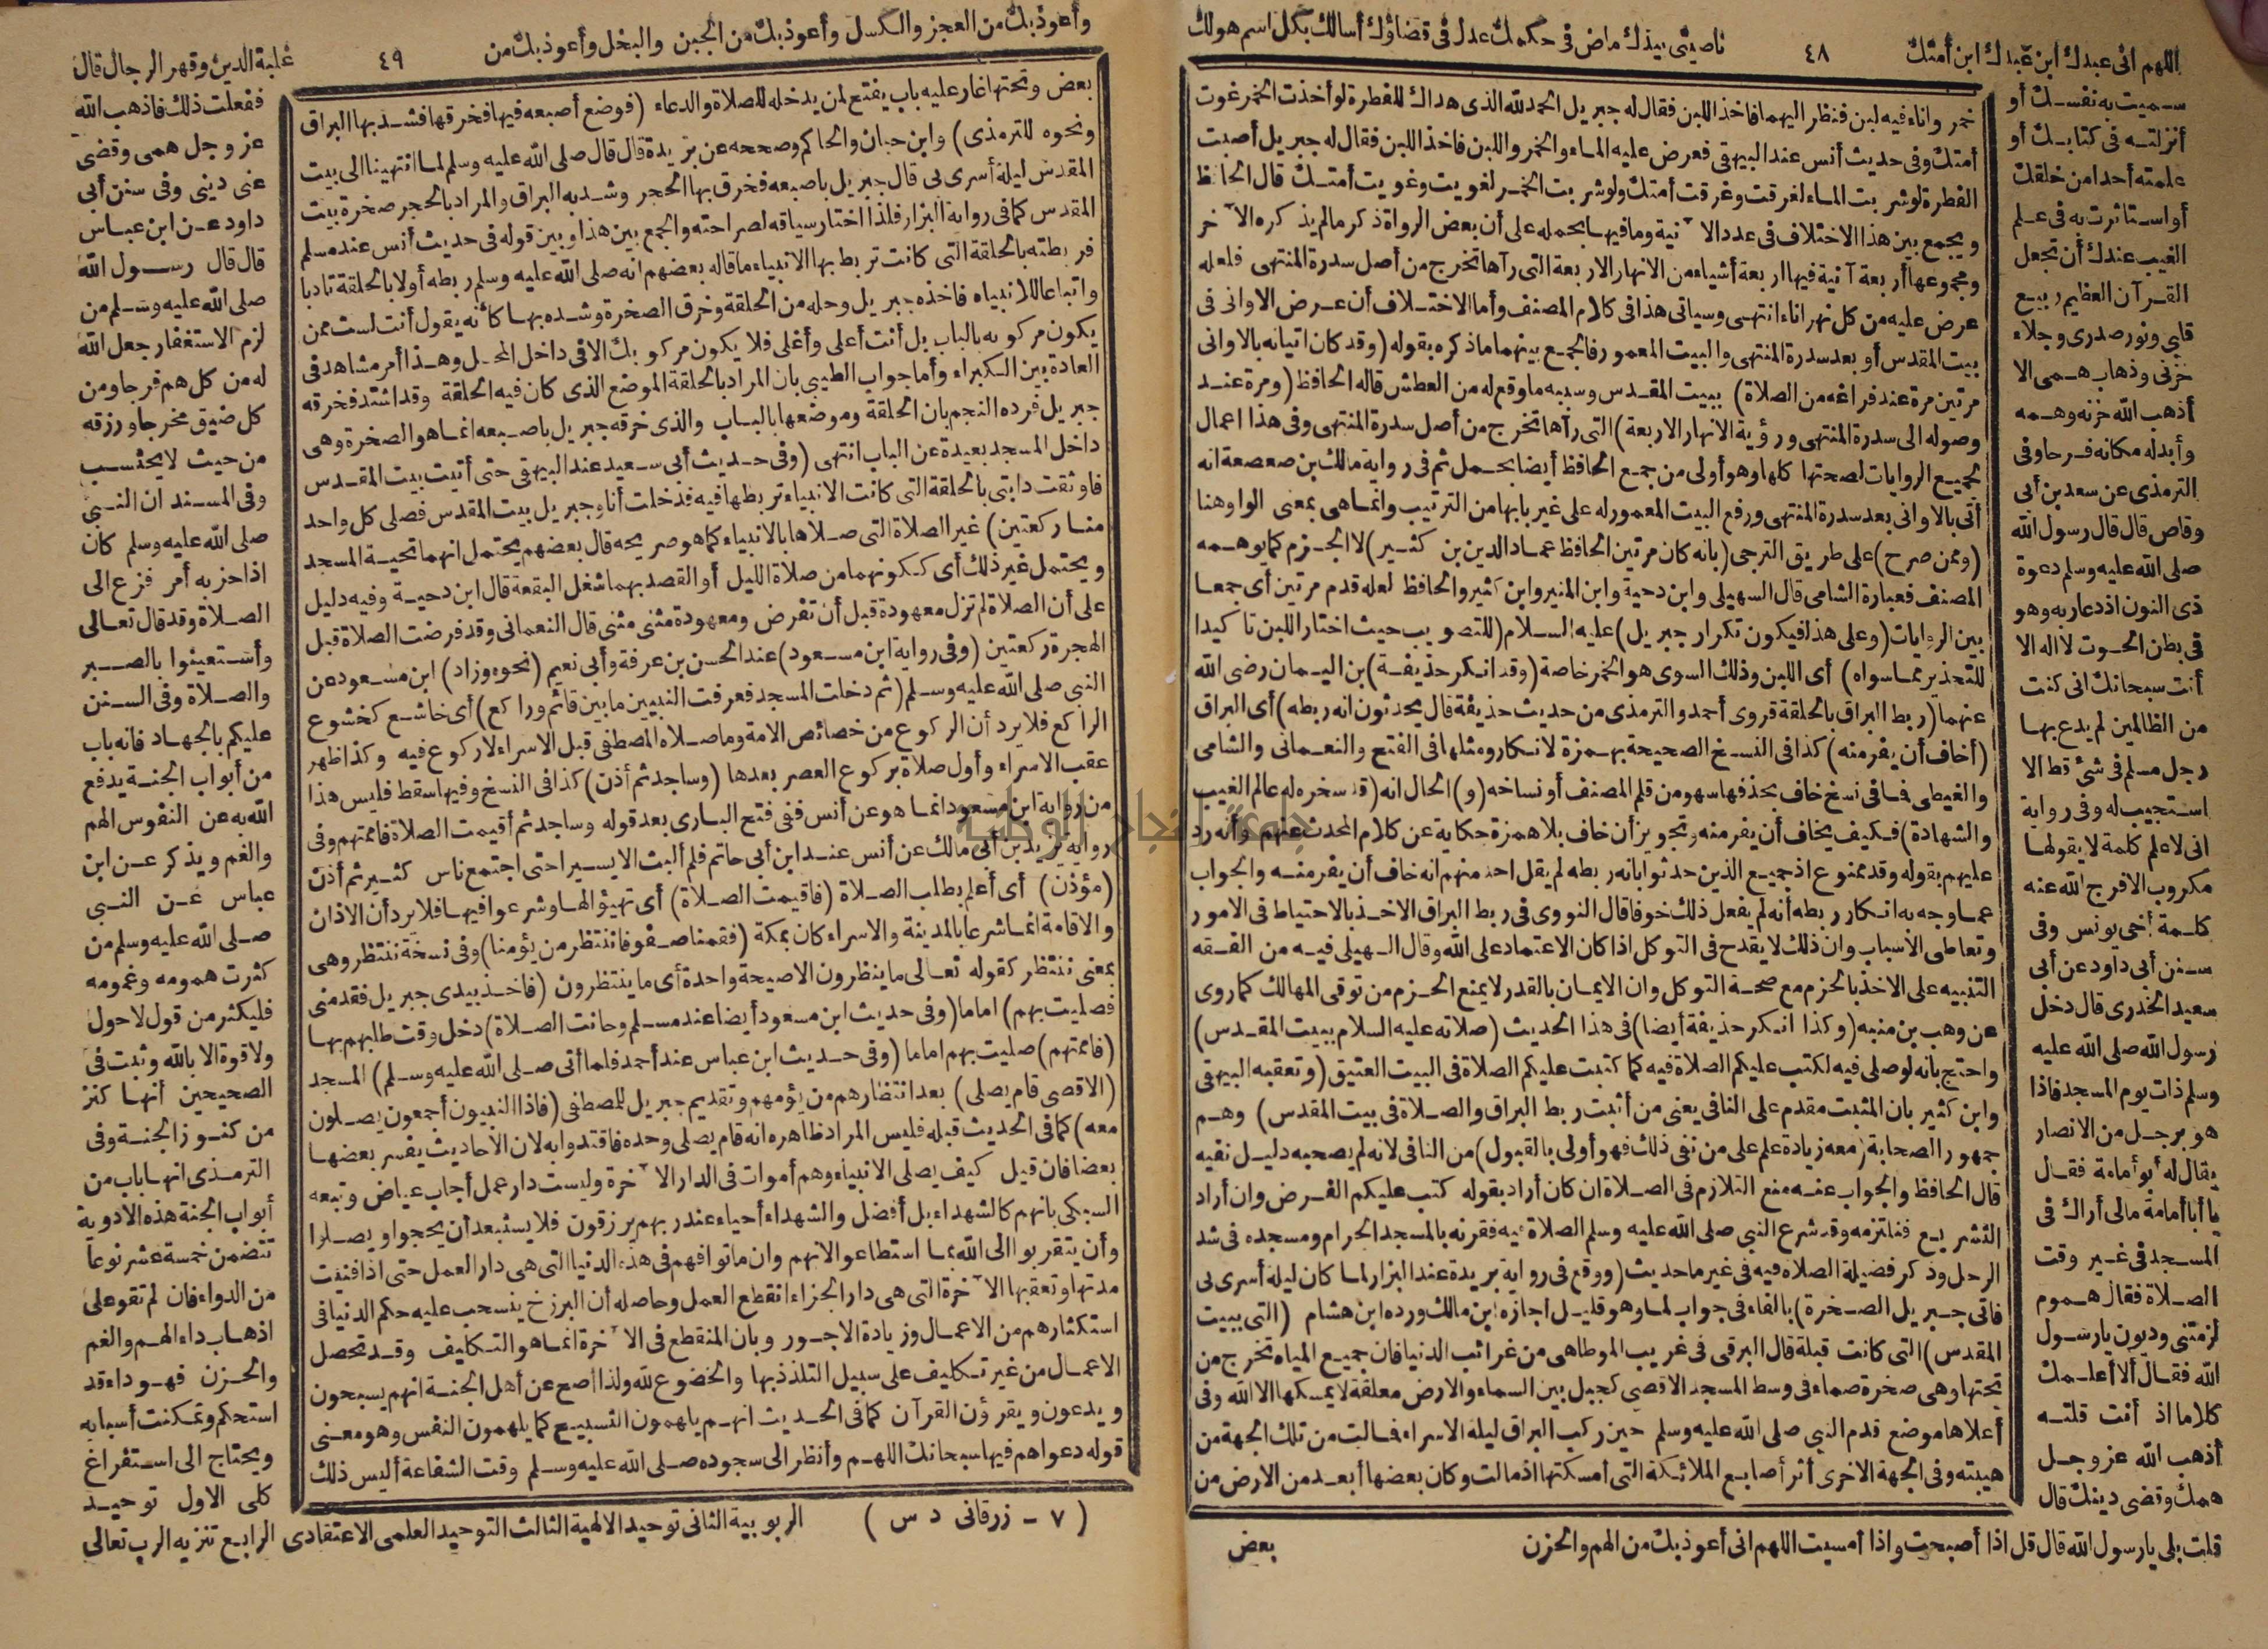 اللهم انى عبدك ابن عبدك ابن أمتك
٤٨
ناصيتى بيدك ماض فى حكمك عدل فى قضاؤك أسالك بكل اسم هولك
سميت به نفسك أو
أنزلته فى كتابك أو
علمته أحدا من خلقك
أو استاثرت به فى علم
الغيب عندك أن تجعل
القرآن العظيم ربيع
قلبى ونور صدرى وجلاء
حزنى وذهاب همى الا
أذهب الله حزنه وهمه
وأبدله مكانه فرحا وفى
الترمذى عن سعد بن أبى
وقاص قال قال رسول الله
صلى الله عليه وسلم دعوة
ذى النون اذ دعا ربه وهو
فى بطن الحوت لا اله الا
أنت سبحانك انى كنت
من الظالمين لم يدع بها
رجل مسلم فى شئ قط الا
استجيب له وفى رواية
انى لاعلم كلمة لا يقولها
مكروب الا فرج الله عنه
كلمة أخى يونس وفى
سنن أبى داود عن أبى
سعيد الخدرى قال دخل
رسول الله صلى الله عليه
وسلم ذات يوم المسجد فاذا
هو برجل من الانصار
يقال له أبو أمامة فقال
يا أبا أمامة مالى أراك فى
المسجد فى غير وقت
الصلاة فقال هموم
لزمتنى وديون يا رسول
الله فقال ألا أعلمك
كلاما اذ أنت قلته
أذهب الله عز وجل
همك وقضى دينك قال
قلت بلى يا رسول الله قال قل اذا أصبحت واذا أمسيت اللهم انى أعوذ بك من الهم والحزن
خمر واناء فيه لبن فنظر اليهما فاخذ اللبن فقال له جبريل الحمد لله الذى هداك للفطرة لو أخذت الخمر غوت
أمتك وفى حديث أنس عند البيهقى فعرض عليه الماء والخمر واللبن فاخذ اللبن فقال له جبريل أصبت
الفطرة لو شربت الماء لغرقت وغرقت أمتك ولو شربت الخمر لغويت وغويت أمتك قال الحافظ
ويجمع بين هذا الاختلاف فى عدد الآنية وما فيها بحمله على أن بعض الرواة ذكر ما لم يذكره الآخر
ومجموعها أربعة آنية فيها أربعة أشياء من الانهار الاربعة التى رآها تخرج من أصل سدرة المنتهى فلعله
عرض عليه من كل نهر اناء انتهى وسياتى هذا فى كلام المصنف وأما الاختلاف أن عرض الاوانى فى
بيت المقدس أو بعد سدرة المنتهى والبيت المعمور فالجمع بينهما ما ذكره بقوله (وقد كان اتيانه بالاوانى
مرتين مرة عند فراغه من الصلاة) ببيت المقدس وسببه ما وقع له من العطش قاله الحافظ (ومرة عند
وصوله الى سدرة المنتهى ورؤية الانهار الاربعة) التى رآها تخرج من أصل سدرة المنتهى وفى هذا اعمال
لجميع الروايات لصحتها كلها وهو أولى من جمع الحافظ أيضا بحمل ثم فى رواية مالك بن صعصعة انه
أتى بالاوانى بعد سدرة المنتهى ورفع البيت المعمور له على غير بابها من الترتيب وانما هى بمعنى الواو هنا
(وممن صرح) على طريق الترجى (بانه كان مرتين الحافظ عماد الدين بن كثير) لا الجزم كما يوهمه
المصنف فعبارة الشامى قال السهيلى وابن دحية وابن المنير وابن كثير والحافظ لعله قدم مرتين أى جمعا
بين الروايات (وعلى هذا فيكون تكرار جبريل) عليه السلام (للتصويب حيث اختار اللبن تاكيدا
للتحذير مما سواه) أى اللبن وذلك السوى هو الخمر خاصة (وقد انكر حذيفة) بن اليمان رضى الله
عنهما (ربط البراق بالحلقة فروى أحمد والترمذى من حديث حذيفة قال يحدثون انه ربطه) أى البراق
(أخاف أن يفر منه) كذا فى النسخ الصحيحة بهمزة لانكار ومثلها فى الفتح والنعمانى والشامى
والغيطى فما فى نسخ خاف بحذفها سهو من قلم المصنف أو نساخه (و) الحال انه (قد سخره له عالم الغيب
والشهادة) فكيف يخاف أن يفر منه وتجويز أن خاف بلا همزة حكاية عن كلام المحدث عنهم وأنه رد
عليهم بقوله وقد ممنوع اذ جميع الذين حدثوا بانه ربطه لم يقل احد منهم انه خاف أن يفر منه والجواب
عما وجه به انكار ربطه أنه لم يفعل ذلك خوفا قال النووى فى ربط البراق الاخذ بالاحتياط فى الامور
وتعاطى الأسباب وان ذلك لا يقدح فى التوكل اذا كان الاعتماد على الله وقال السهيلى فيه من الفقه
التنبيه على الاخذ بالحزم مع صحة التوكل وان الايمان بالقدر لا يمنع الحزم من توقى المهالك كما روى
عن وهب بن منبه (وكذا انكر حذيفة أيضا) فى هذا الحديث (صلاته عليه السلام ببيت المقدس)
واحتج بانه لو صلى فيه لكتب عليكم الصلاة فيه كما كتبت عليكم الصلاة فى البيت العتيق (وتعقبه البيهقى
وابن كثير بان المثبت مقدم على النافى يعنى من أثبت ربط البراق والصلاة فى بيت المقدس) وهم
جمهور الصحابة (معه زيادة علم على من نفى ذلك فهو أولى بالقبول) من النافى لانه لم يصحبه دليل نفيه
قال الحافظ والجواب عنه منع التلازم فى الصلاة ان كان أراد بقوله كتب عليكم الفرض وان أراد
التشريع فنلتزمه وقد شرع النبى صلى الله عليه وسلم الصلاة فيه فقرنه بالمسجد الحرام ومسجده فى شد
الرحل وذكر فضيلة الصلاة فيه فى غير ما حديث (ووقع فى رواية بريدة عند البزار لما كان ليلة أسرى بى
فاتى جبريل الصخرة) بالفاء فى جواب لما وهو قليل اجازه ابن مالك ورده ابن هشام (التى ببيت
المقدس) التى كانت قبلة قال البرقى فى غريب الموطا هى من غرائب الدنيا فان جميع المياه تخرج من
تحتها وهى صخرة صماء فى وسط المسجد الاقصى كجبل بين السماء والارض معلقة لا يمسكها الا الله وفى
أعلاها موضع قدم النبى صلى الله عليه وسلم حين ركب البراق ليلة الاسراء فمالت من تلك الجهة من
هيبته وفى الجهة الاخرى أثر أصابع الملائكة التى أمسكتها اذ مالت وكان بعضها أبعد من الارض من
بعض
وأعوذ بك من العجز والكسل وأعوذ بك من الجبن والبخل وأعوذ بك من
٤٩
غلبة الدين وقهر الرجال قال
بعض وتحتها غار عليه باب يفتح لمن يدخله للصلاة والدعاء (فوضع أصبعه فيها فخرقها فشد بها البراق
ونحوه للترمذى) وابن حبان والحاكم وصححه عن بريدة قال قال صلى الله عليه وسلم لما انتهينا الى بيت
المقدس ليلة أسرى بى قال جبريل باصبعه فخرق بها الحجر وشد به البراق والمراد بالحجر صخرة بيت
المقدس كما فى رواية البزار فلذا اختار سياقه لصراحته والجمع بين هذا وبين قوله فى حديث أنس عند مسلم
فربطته بالحلقة التى كانت تربط بها الانبياء ما قاله بعضهم انه صلى الله عليه وسلم ربطه أولا بالحلقة تادبا
واتباعا للانبياء فاخذه جبريل وحله من الحلقة وخرق الصخرة وشده بها كأنه يقول أنت لست ممن
يكون مركوبه بالباب بل أنت أعلى وأغلى فلا يكون مركوبك الا فى داخل المحل وهذا أمر مشاهد فى
العادة بين الكبراء وأما جواب الطيبى بان المراد بالحلقة الموضع الذى كان فيه الحلقة وقد انسد فخرقه
جبريل فرده النجم بان الحلقة وموضعها بالباب والذى خرقه جبريل باصبعه انما هو الصخرة وهى
داخل المسجد بعيدة عن الباب انتهى (وفى حديث أبى سعيد عند البيهقى حتى أتيت بيت المقدس
فاوثقت دابتى بالحلقة التى كانت الانبياء تربطها فيه فدخلت أنا وجبريل بيت المقدس فصلى كل واحد
منا ركعتين) غير الصلاة التى صلاها بالانبياء كما هو صريحه قال بعضهم يحتمل انهما تحية المسجد
ويحتمل غير ذلك أى ككونهما من صلاة الليل أو القصد بهما شغل البقعة قال ابن دحية وفيه دليل
على أن الصلاة لم تزل معهودة قبل أن تفرض ومعهودة مثنى مثنى قال النعمانى وقد فرضت الصلاة قبل
الهجرة ركعتين (وفى رواية ابن مسعود) عند الحسن بن عرفة وأبى نعيم (نحوه وزاد) ابن مسعود عن
النبى صلى الله عليه وسلم (ثم دخلت المسجد فعرفت النبيين ما بين قائم وراكع) أى خاشع كخشوع
الراكع فلا يرد أن الركوع من خصائص الامة وما صلاه المصطفى قبل الاسراء لا ركوع فيه وكذا ظهر
عقب الاسراء وأول صلاة بركوع العصر بعدها (وساجد ثم أذن) كذا فى النسخ وفيها سقط فليس هذا
من رواية ابن مسعود انما هو عن أنس ففى فتح البارى بعد قوله وساجد ثم أقيمت الصلاة فاممتهم وفى
رواية يزيد بن أبى مالك عن أنس عند ابن أبى حاتم فلم ألبث الا يسيرا حتى اجتمع ناس كثير ثم أذن
(مؤذن) أى أعلم بطلب الصلاة (فاقيمت الصلاة) أى تهيؤ لها وشرعوا فيها فلا يرد أن الاذان
والاقامة انما شرعا بالمدينة والاسراء كان بمكة (فقمنا صفوفا ننتظر من يؤمنا) وفى نسخة ننتظر وهى
بمعنى ننتظر كقوله تعالى ما ينظرون الا صيحة واحدة أى ما ينتظرون (فاخذ بيدى جبريل فقدمنى
فصليت بهم) اماما (وفى حديث ابن مسعود أيضا عند مسلم وحانت الصلاة) دخل وقت طلبهم بها
(فاممتهم) صليت بهم اماما (وفى حديث ابن عباس عند أحمد فلما أتى صلى الله عليه وسلم) المسجد
(الاقصى قام يصلى) بعد انتظارهم من يؤمهم وتقديم جبريل للمصطفى (فاذا النبيون أجمعون يصلون
معه) كما فى الحديث قبله فليس المراد ظاهره انه قام يصلى وحده فاقتدوا به لان الأحاديث يفسر بعضها
بعضا فان قيل كيف يصلى الانبياء وهم أموات فى الدار الآخرة وليست دار عمل أجاب عياض وتبعه
السبكى بانهم كالشهداء بل أفضل والشهداء أحياء عند ربهم يرزقون فلا يستبعد أن يحجوا ويصلوا
وأن يتقربوا الى الله بما استطاعوا لانهم وان ماتوا فهم فى هذه الدنيا التى هى دار العمل حتى اذا فنيت
مدتها وتعقبها الآخرة التى هى دار الجزاء انقطع العمل وحاصله أن البرزخ ينسحب عليه حكم الدنيا فى
استكثارهم من الاعمال وزيادة الاجور وبان المنقطع فى الآخرة انما هو التكليف وقد تحصل
الاعمال من غير تكليف على سبيل التلذذ بها والخضوع لله ولذا أصح عن أهل الجنة انهم يسبحون
ويدعون ويقرؤن القرآن كما فى الحديث انهم يلهمون التسبيح كما يلهمون النفس وهو معنى
قوله دعواهم فيها سبحانك اللهم وأنظر الى سجوده صلى الله عليه وسلم وقت الشفاعة أليس ذلك
ففعلت ذلك فاذهب الله
عز وجل همى وقضى
عنى دينى وفى سنن أبى
داود عن ابن عباس
قال قال رسول الله
صلى الله عليه وسلم من
لزم الاستغفار جعل الله
له من كل هم فرجا ومن
كل ضيق مخرجا ورزقه
من حيث لا يحتسب
وفى المسند ان النبى
صلى الله عليه وسلم كان
اذا حزبه أمر فزع الى
الصلاة وقد قال تعالى
وأستعينوا بالصبر
والصلاة وفى السنن
عليكم بالجهاد فانه باب
من أبواب الجنة يدفع
الله به عن النفوس الهم
والغم ويذكر عن ابن
عباس عن النبى
صلى الله عليه وسلم من
كثرت همومه وغمومه
فليكثر من قول لا حول
ولا قوة الا بالله وثبت فى
الصحيحين أنها كنز
من كنوز الجنة وفى
الترمذى انها باب من
أبواب الجنة هذه الادوية
تتضمن خمسة عشر نوعا
من الدواء فان لم تقو على
اذهاب داء الهم والغم
والحزن فهو داء قد
استحكم وتمكنت أسبابه
ويحتاج الى استفراغ
كلى الاول توحيد
الربوبية الثانى توحيد الالهية الثالث التوحيد العلمى الاعتقادى الرابع تنزيه الرب تعالى
(٧ - زرقانى د س)
جامعة النجاح الوطنية